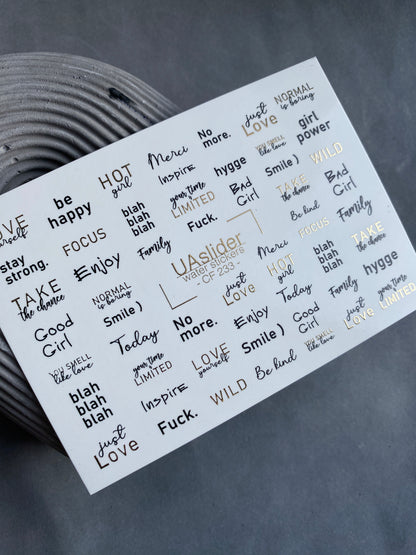 LOVE
yourself
be
happy
HOT
girl
Merci
No
more.
just
Love
NORMAL
is boring
stay
strong.
FOCUS
blah
blah
blah
Inspire
your time
LIMITED
hygge
YOU SMELL
like love
girl
power
TAKE
the chance
Enjoy
Family
Fuck.
BAD
Girl
Smile )
WILD
Good
Girl
NORMAL
is boring
Smile )
UAslider
water stickers
- CF 233 -
TAKE
the chance
Be kind
BAD
Girl
Merci
FOCUS
Family
YOU SMELL
like love
Today
No
more.
just
Love
HOT
girl
blah
blah
blah
TAKE
the chance
blah
blah
blah
your time
LIMITED
LOVE
yourself
Enjoy
Today
Family
hygge
just
Love
Inspire
Fuck.
WILD
Be kind
Smile )
Good
Girl
YOU SMELL
like love
just
Love
your time
LIMITED